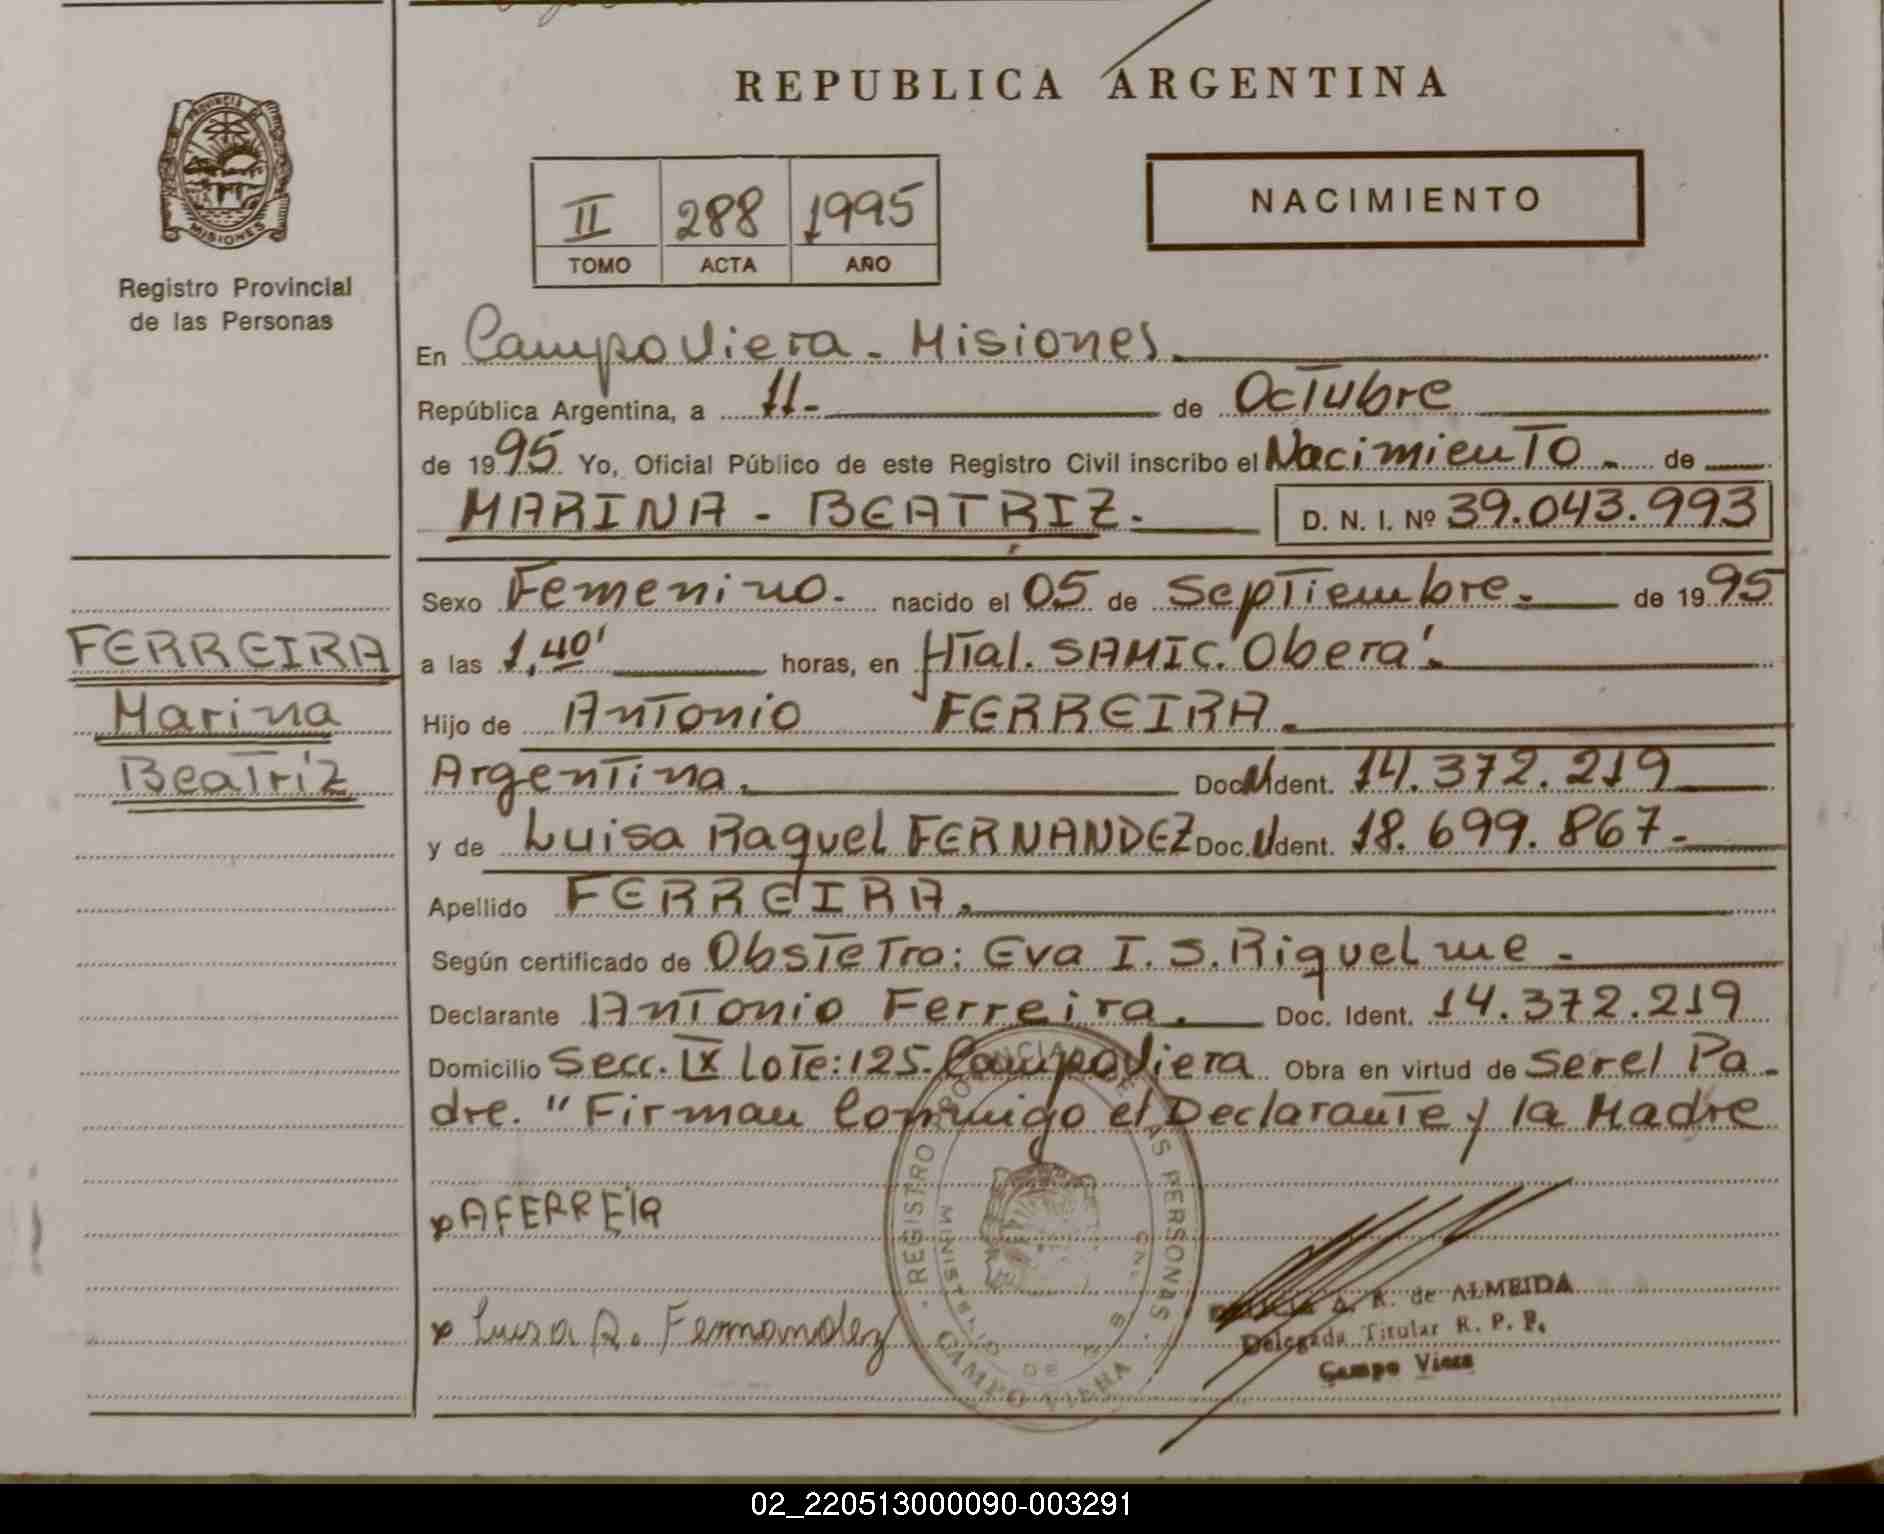 REPUBLICA ARGENTINA
PROVINCIA DE
MISIONES
Registro Provincial
de las Personas
II 288 1995
TOMO ACTA AÑO
NACIMIENTO
En Campo Viera - Misiones.
República Argentina, a 11- de Octubre
de 1995 Yo, Oficial Público de este Registro Civil inscribo el Nacimiento - de
MARINA - BEATRIZ. D. N. I. Nº 39.043.993
Sexo Femenino. nacido el 05 de Septiembre. de 1995
FERREIRA
Marina
Beatriz
a las 1,40' horas, en Htal. SAMIC. Oberá.
Hijo de Antonio FERREIRA.
Argentina. Doc. Ident. 14.372.219
y de Luisa Raquel FERNANDEZ Doc. Ident. 18.699.867-
Apellido FERREIRA.
Según certificado de Obstetra: Eva I. S. Riquelme -
Declarante Antonio Ferreira. Doc. Ident. 14.372.219
Domicilio Secc. IX Lote: 125- Campo Viera Obra en virtud de Ser el Pa-
dre. "Firman Conmigo el Declarante y la Madre
x AFERREIR
x Luisa R. Fernandez
REGISTRO PROVINCIAL DE LAS PERSONAS
MINISTERIO DE
CAMPO VIERA
A. R. de ALMEIDA
Delegada Titular R. P. P.
Campo Viera
02_220513000090-003291